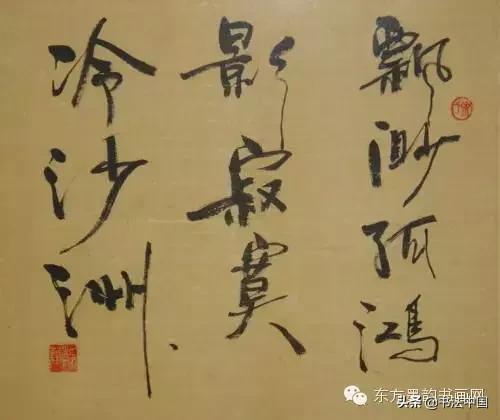 飘渺孤鸿
影寂寞
冷沙洲
东方墨韵书画网
头条@书法中国